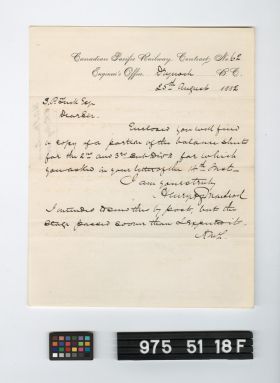 Canadian Pacific Railway, Contract No 62
Engineer's Office, B.C.
25th August 1882
Esq
Dear Sir
Enclosed you will find
a copy of a portion of the balance sheets
for the 2nd and 3rd Sub Divs for which
you asked in your letter of the 14th Inst.
I am yours truly
Henry
I intended to send this by post, but the
stage passed sooner than I expected it.
975 51 18 F